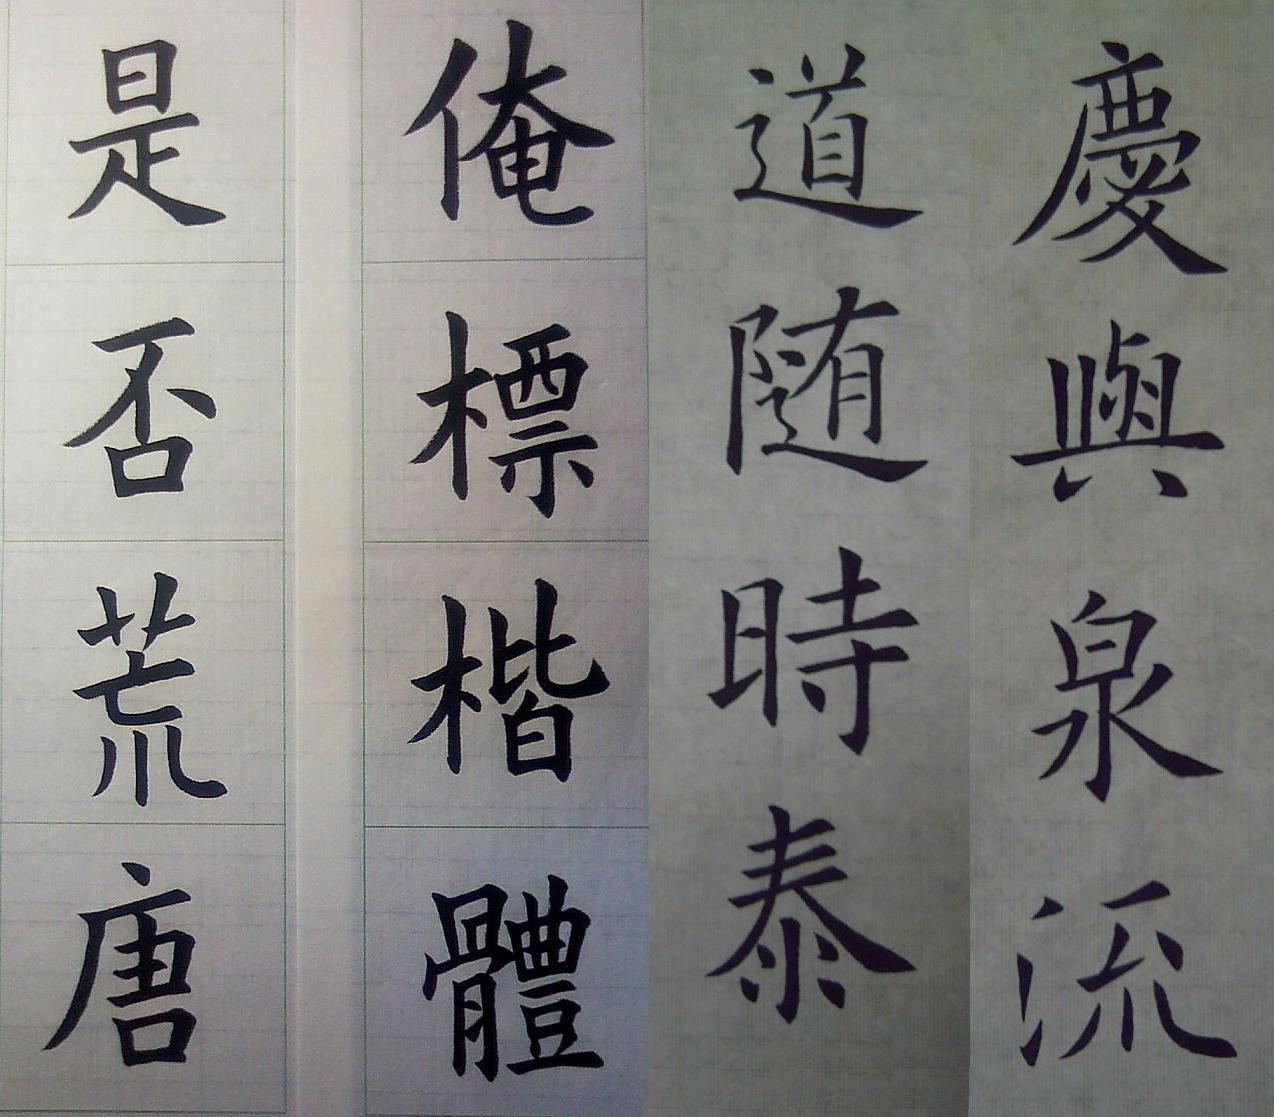 慶與泉流
道随時泰
俺標楷體
是否荒唐